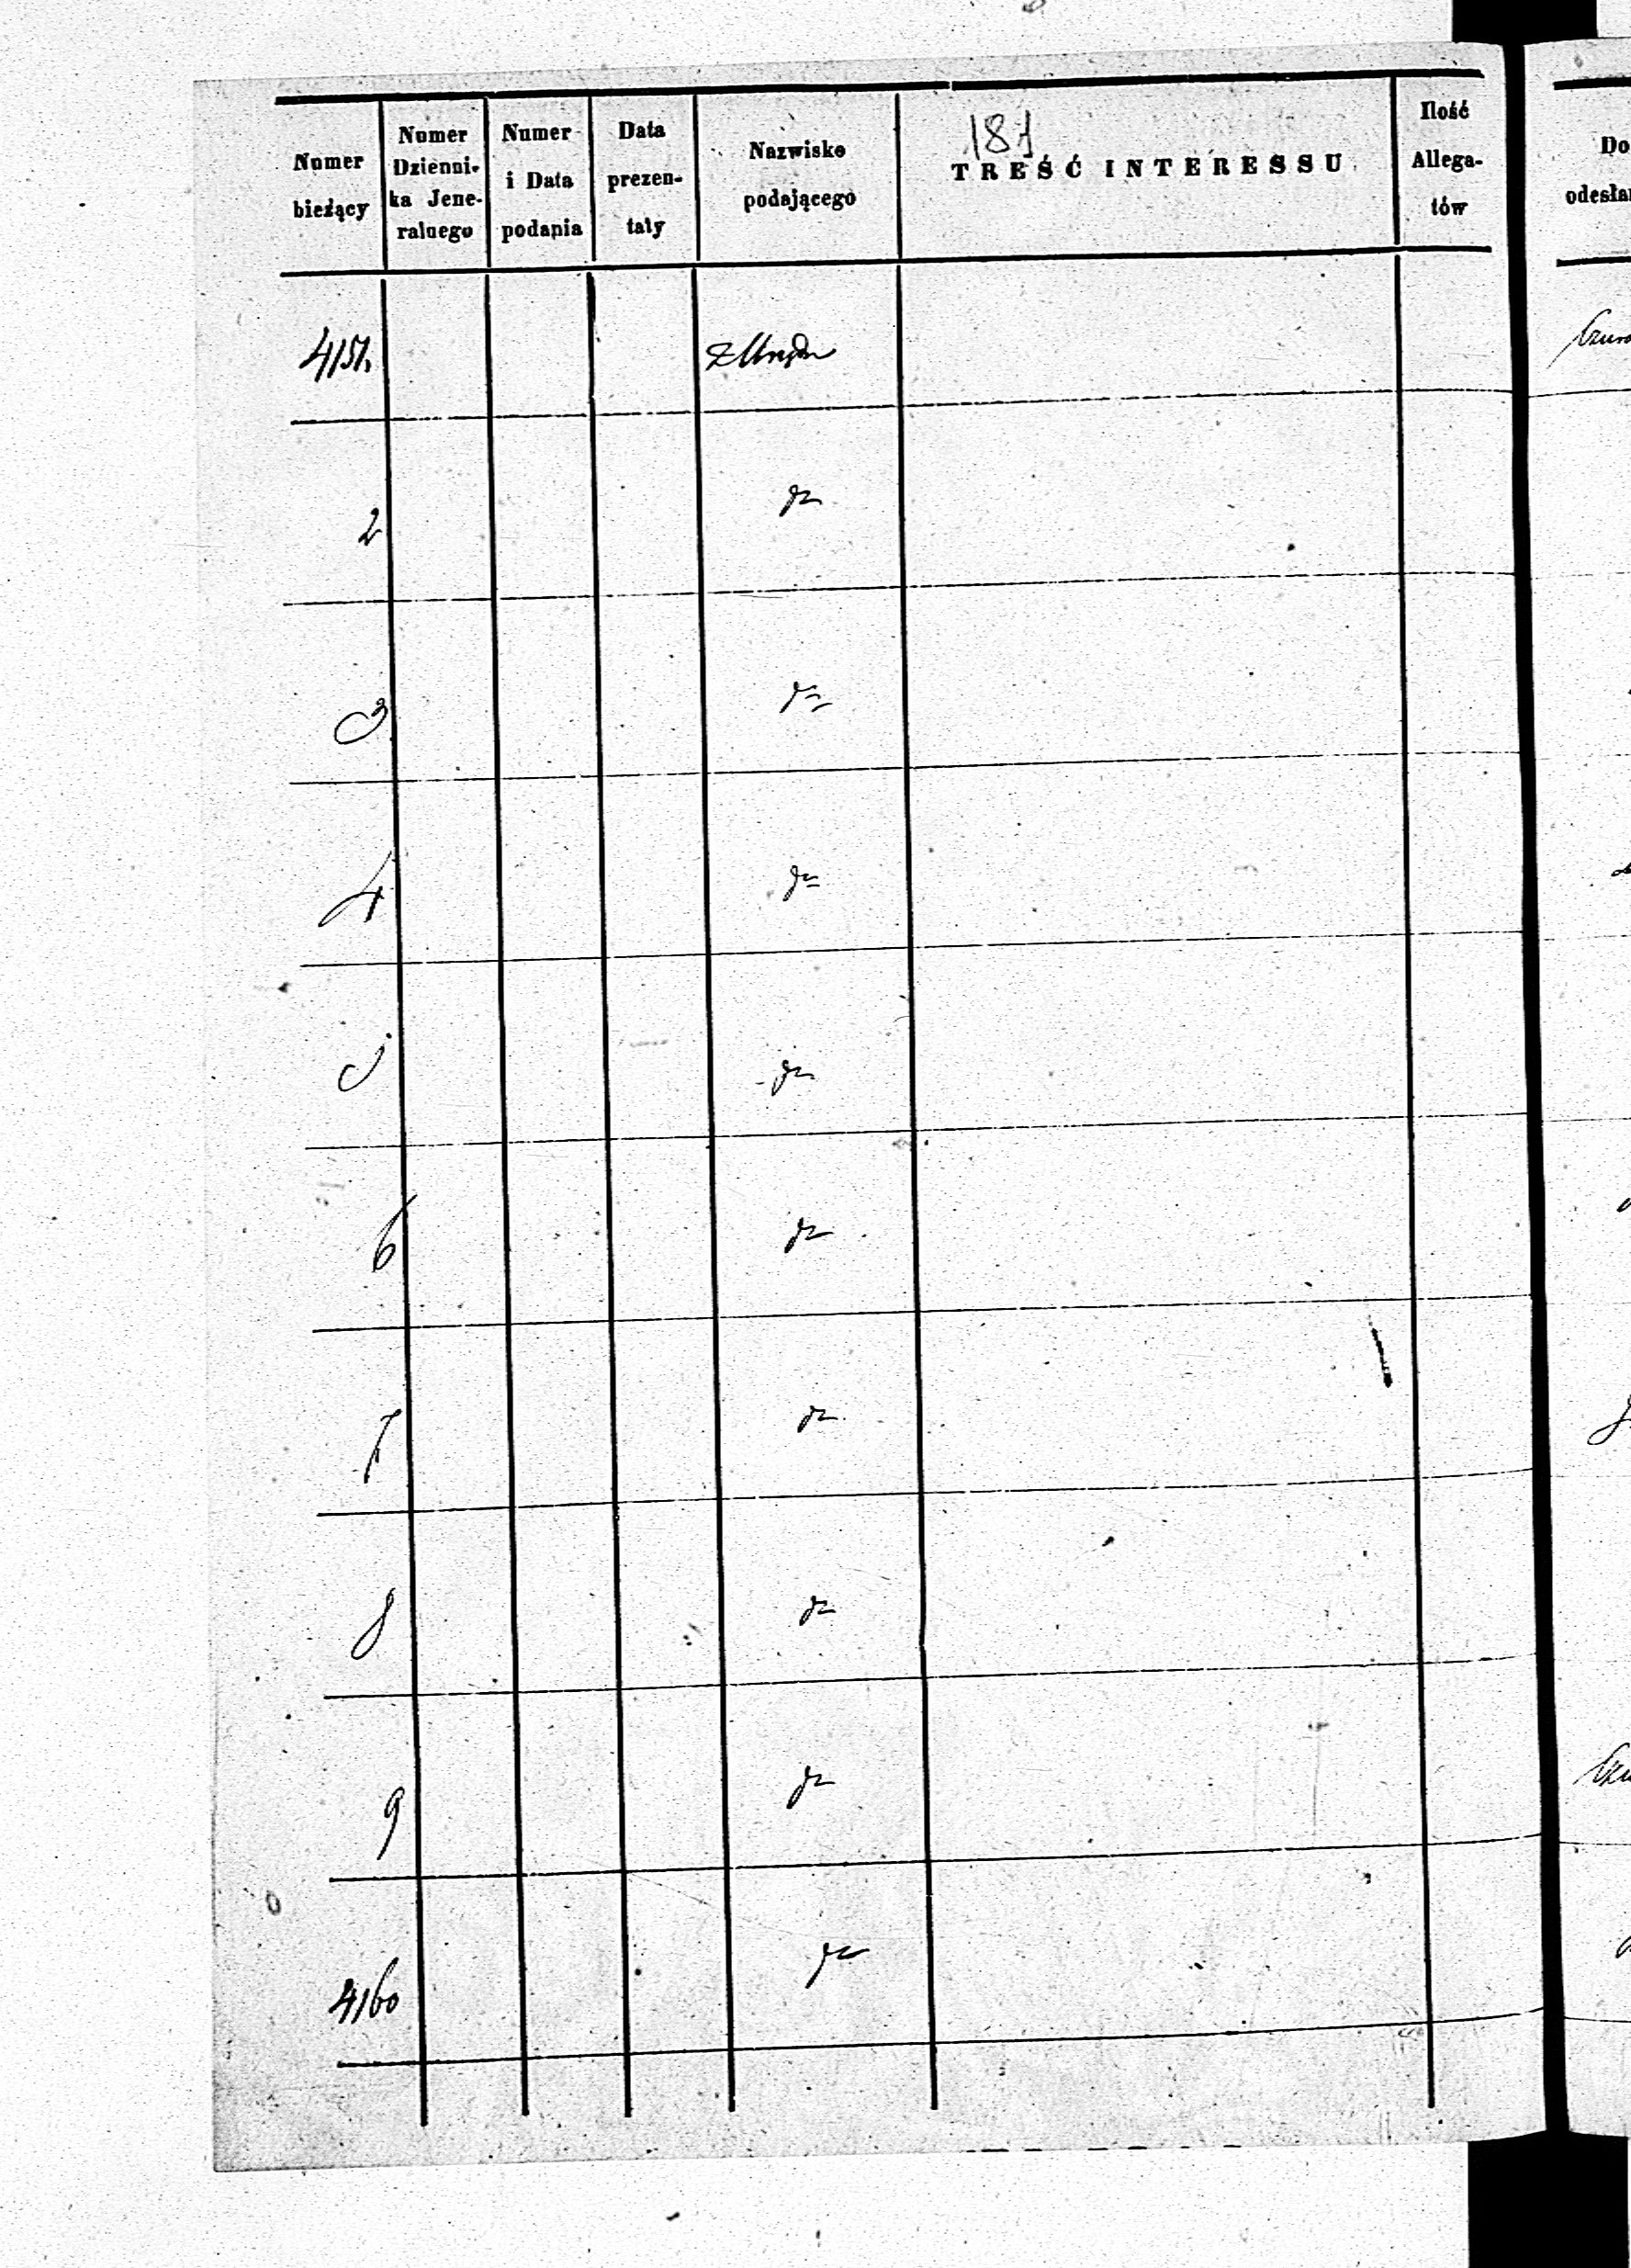 Numer bieżący
Numer Dzienni-ka Jene-ralnego
Numer i Data podania
Data prezen-taty
Nazwisko podającego
TREŚĆ INTERESSU
Ilość Allega-tów
Do
4151.
z Urzędu
2
dto
3
dto
4
dto
5
dto
6
dto
7
dto
8
dto
9
dto
4160
dto